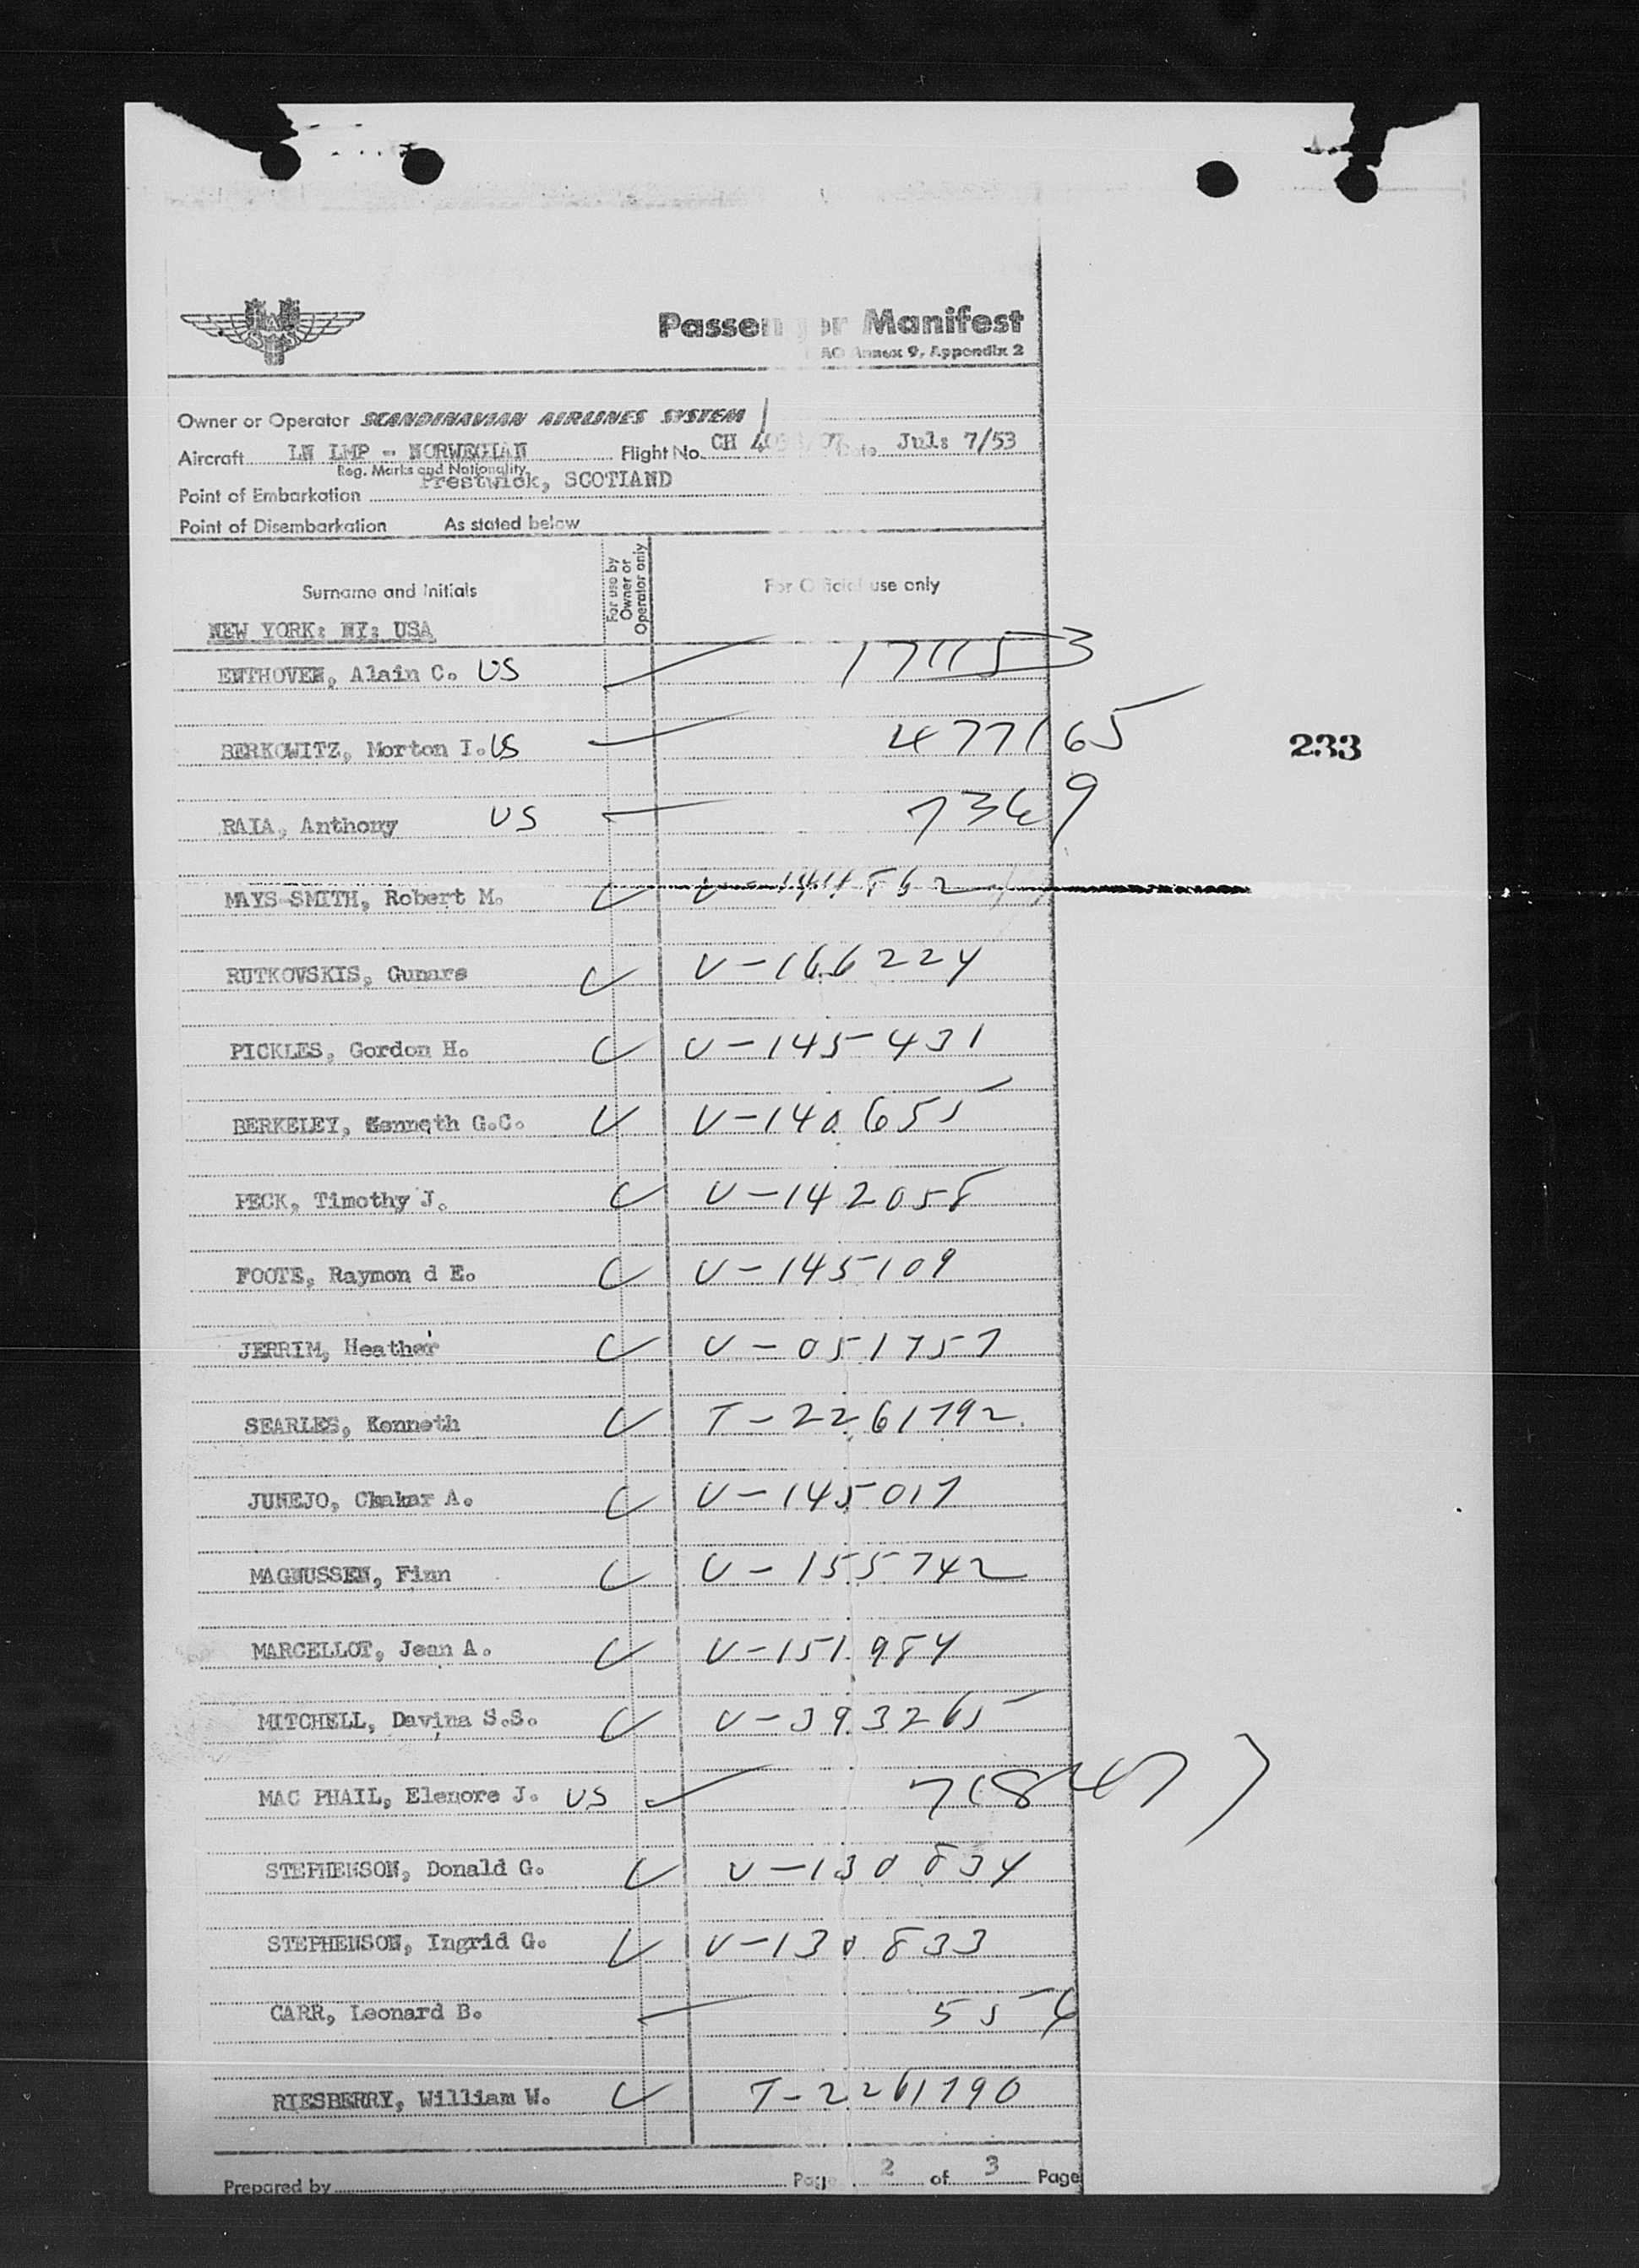 SAS
Passen r Manifest
AO Annex 9, Appendix 2
Owner or Operator SCANDINAVIAN AIRLINES SYSTEM
Aircraft LN LMP - NORWEGIAN Flight No. CH Date Jul: 7/53
Reg. Marks and Nationality
Point of Embarkation Prestwick, SCOTLAND
Point of Disembarkation As stated below
Surname and Initials
For use by Owner or Operator only
For Official use only
NEW YORK: NY: USA
ENTHOVEN, Alain C. US 171153
BERKOWITZ, Morton I. US 477165
233
RAIA, Anthony US
MAYS-SMITH, Robert M.
RUTKOVSKIS, Gunars V-166224
PICKLES, Gordon H. V-145431
BERKELEY, Kenneth G.C. V-140655
PECK, Timothy J. V-142058
FOOTE, Raymon d E. V-145109
JERRIM, Heather V-051757
SEARLES, Kenneth T-2261792
JUNEJO, Chakar A. V-145017
MAGNUSSEN, Finn V-155742
MARCELLOT, Jean A. V-151984
MITCHELL, Davina S.S. V-393265
MAC PHAIL, Elenore J. US
STEPHENSON, Donald G. V-130834
STEPHENSON, Ingrid G. V-130833
CARR, Leonard B.
RIESBERRY, William W. T-2261790
Prepared by Page 2 of 3 Page